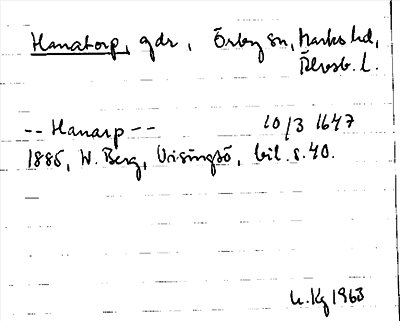 Hanatorp, gdr, Örby sn, Marks hd,
Älvsb. l.
-- Hanarp -- 10/3 1647
1885, W. Berg, Visingsö, bil. s. 40.
Kg 1963